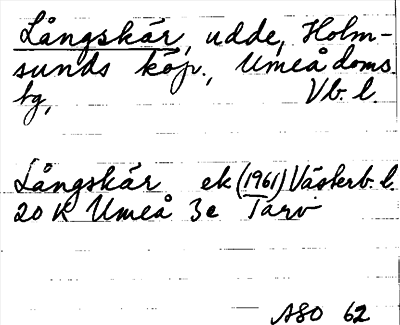 Långskär, udde, Holm-
sunds köp., Umeå doms.
hg,
Vb. l.
Långskär ek (1961) Västerb. l.
20 K Umeå 3c Tarv
ASO 62